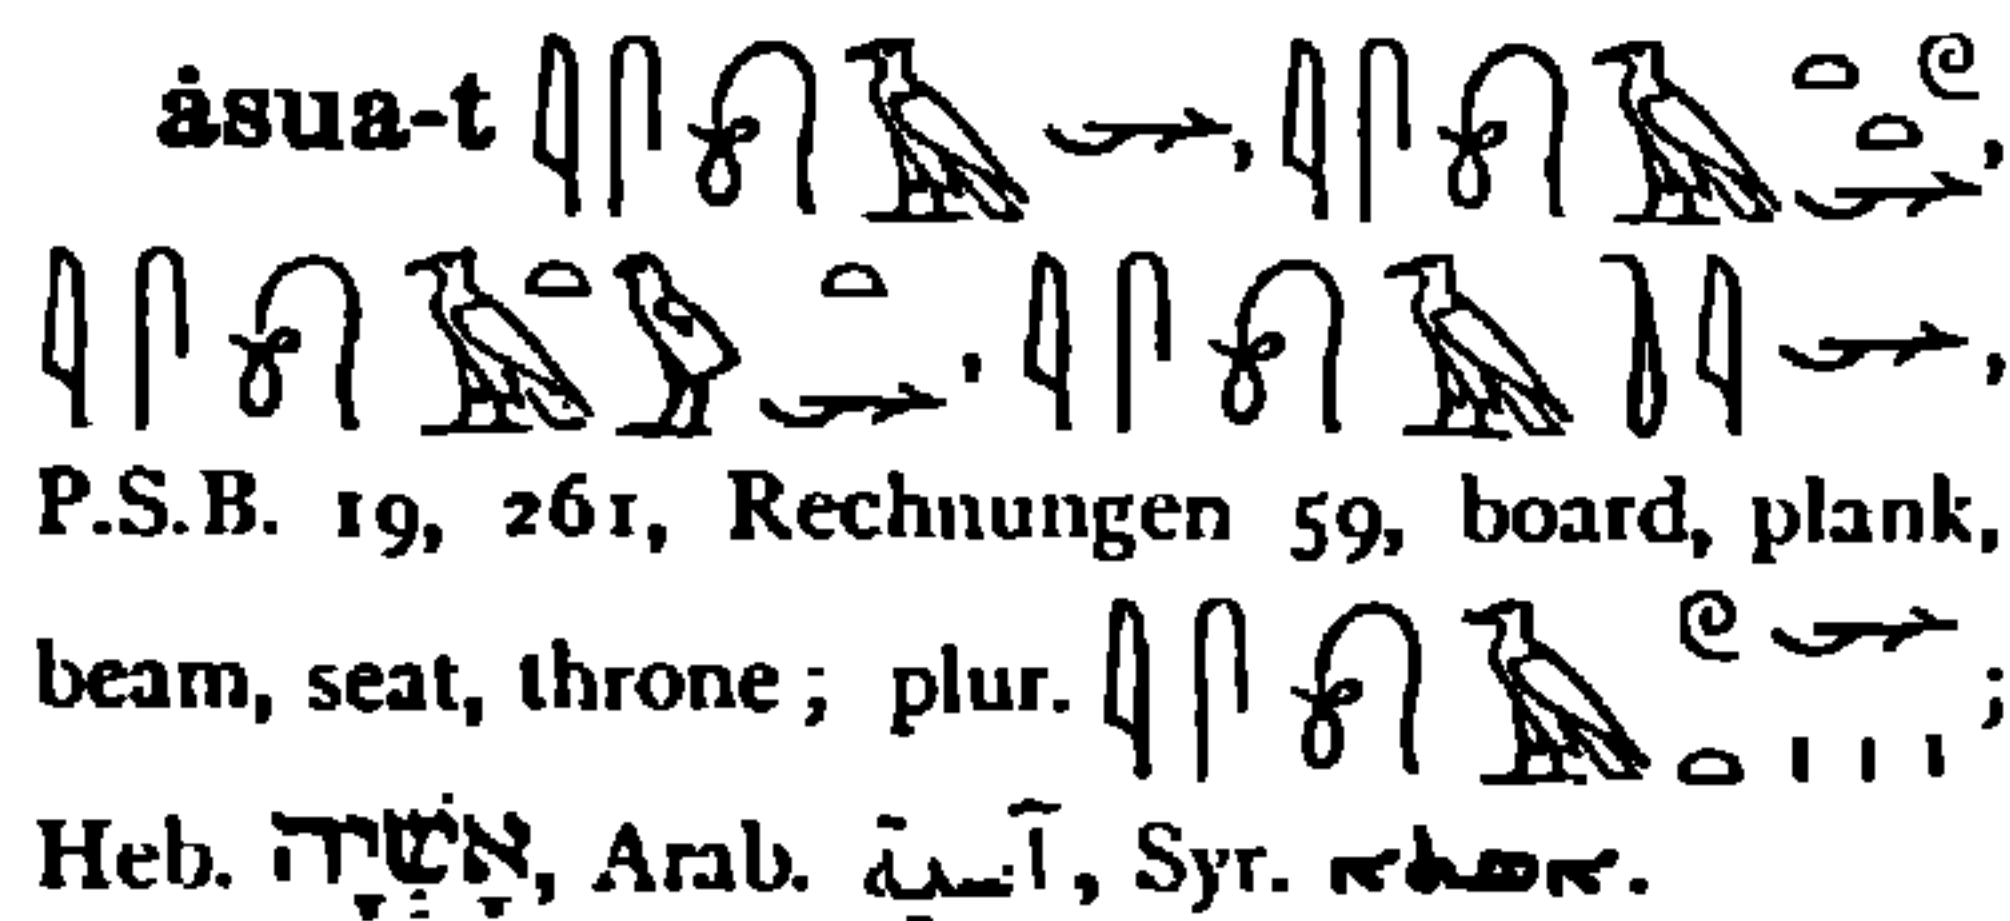 ȧsua-t 𓇋𓋴𓍯𓄿𓆱, 𓇋𓋴𓍯𓄿𓏏𓏲𓏏𓆱,
𓇋𓋴𓍯𓄿𓏏𓅱𓏏𓆱, 𓇋𓋴𓍯𓄿𓍘𓇋𓆱,
P.S.B. 19, 261, Rechnungen 59, board, plank,
beam, seat, throne; plur. 𓇋𓋴𓍯𓄿𓏲𓆱𓏏𓏥;
Heb. אָשְׁיָה, Arab. آسية, Syr.